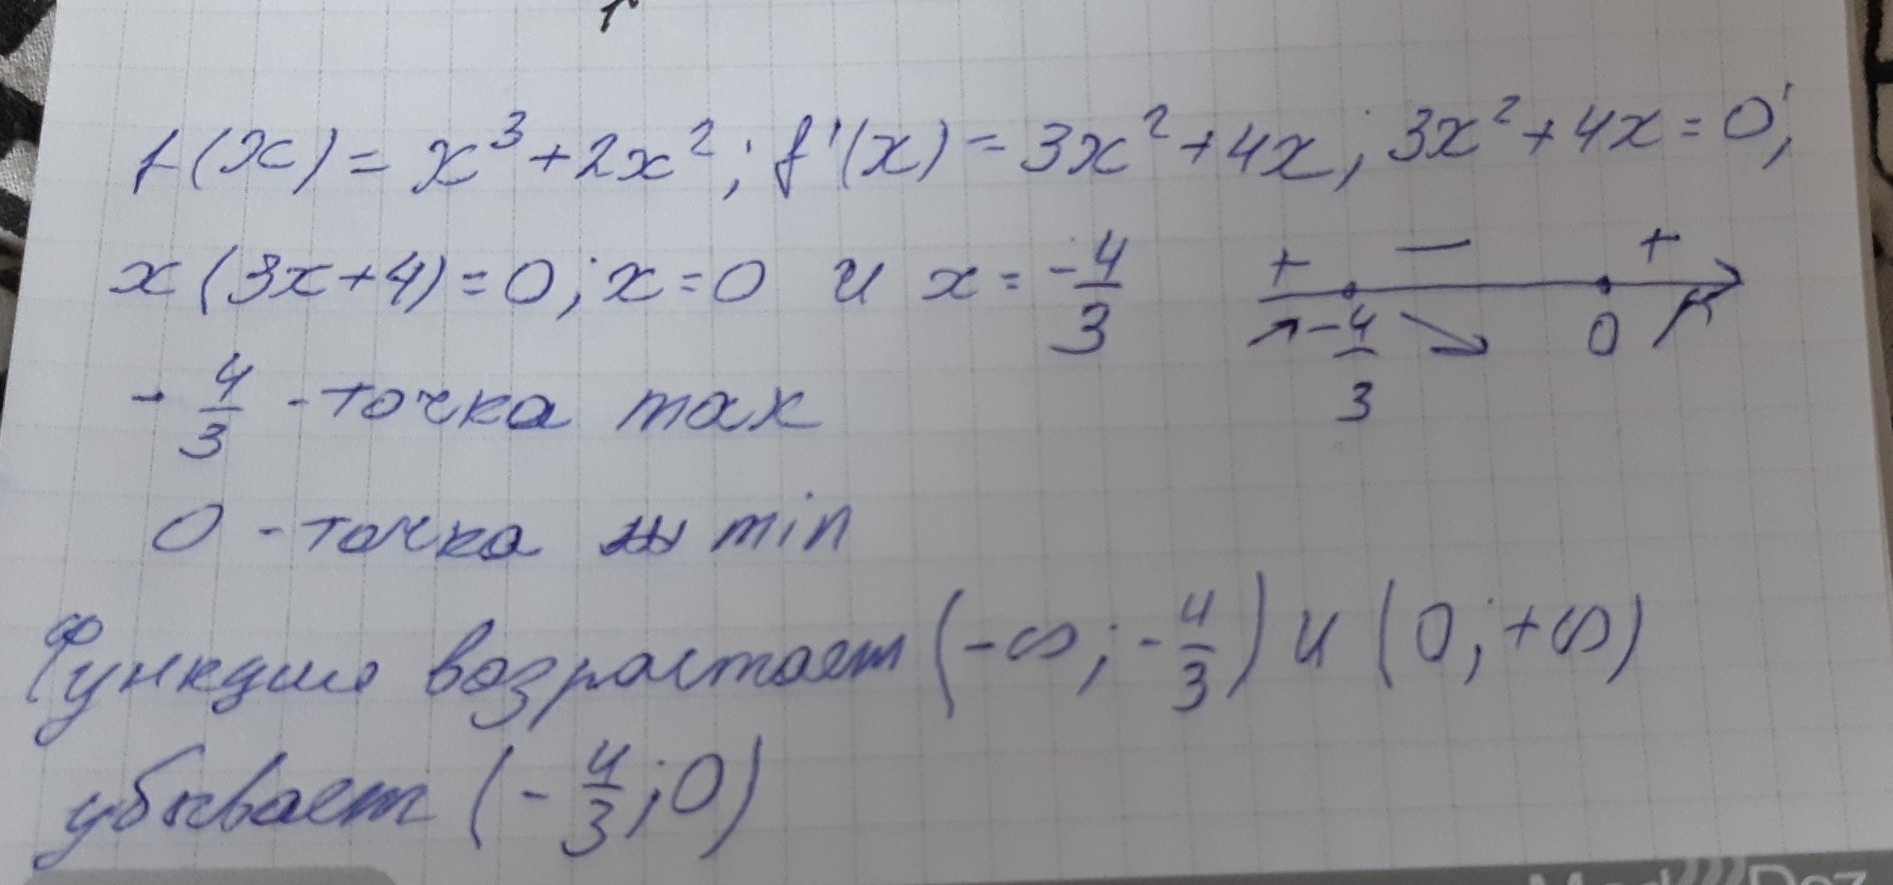 f(x) = x³ + 2x²; f'(x) = 3x² + 4x; 3x² + 4x = 0;
x(3x+4) = 0; x = 0 и x = -4/3
+ − +
-4/3 0
- 4/3 - точка max
0 - точка min
Функция возрастает (-∞; -4/3) и (0; +∞)
убывает (-4/3; 0)